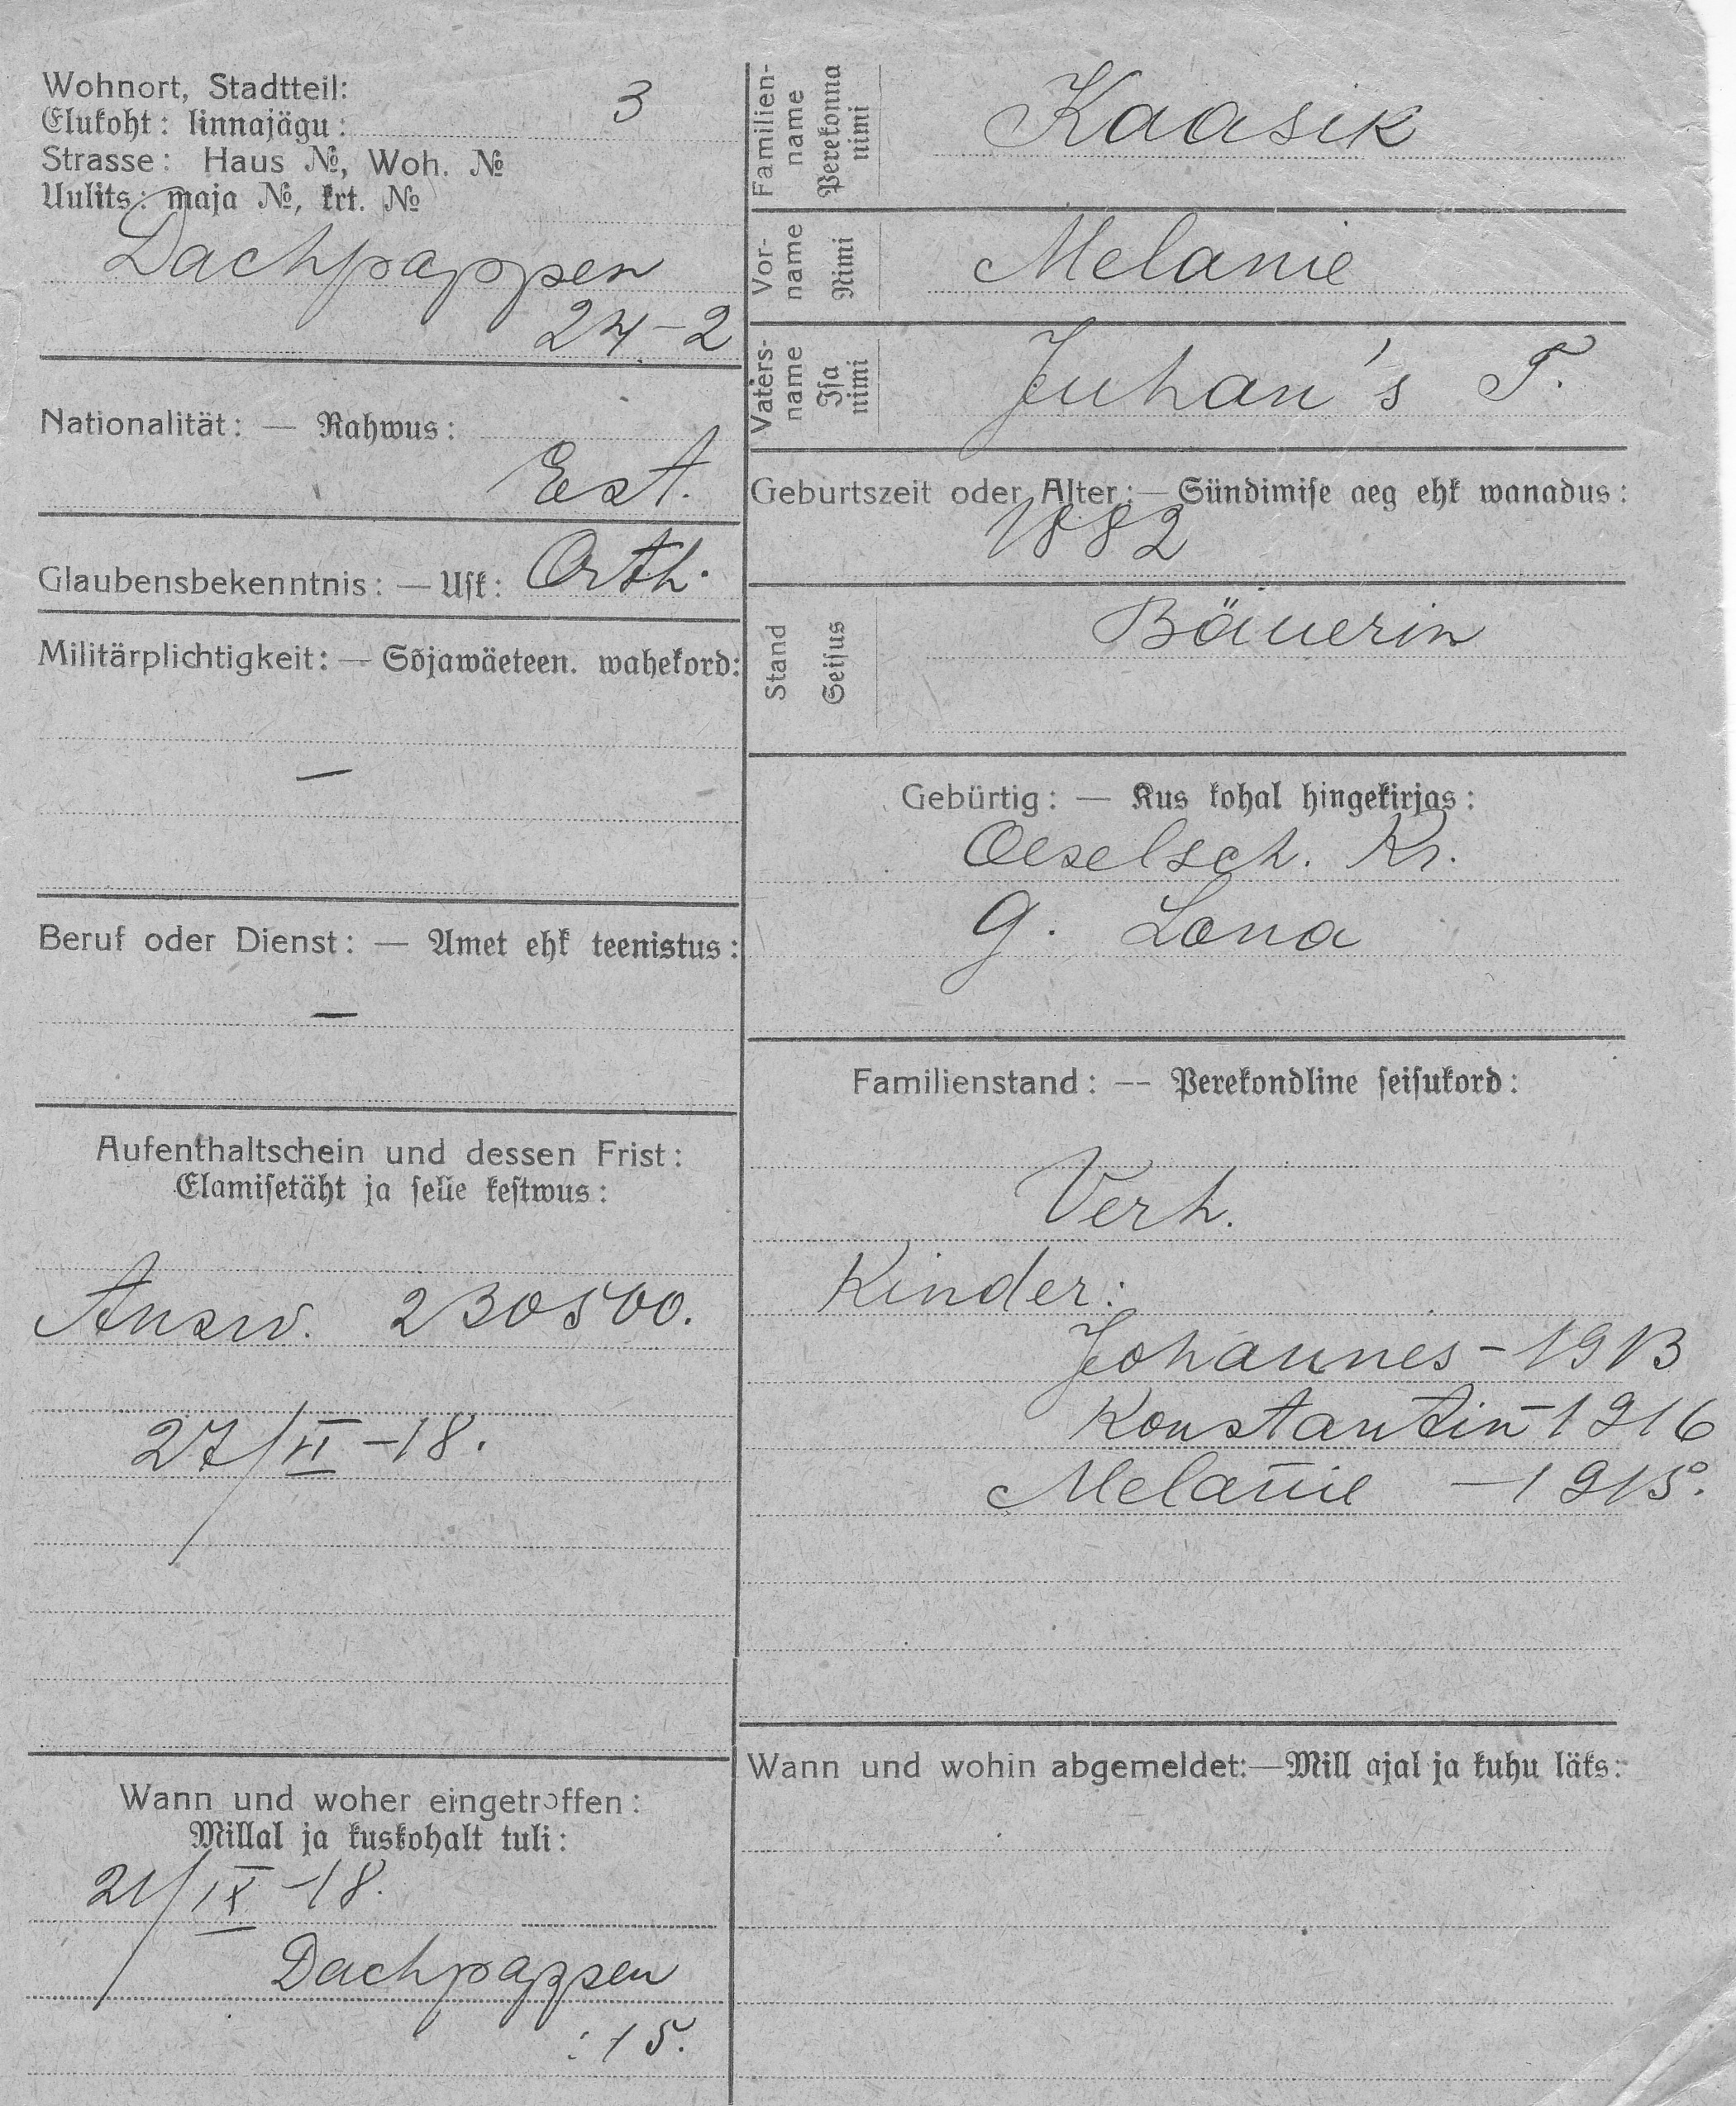 Wohnort, Stadtteil:
Elukoht: linnajägu: 3
Strasse: Haus №, Woh. №
Uulits: maja №, krt. №
Dachpappen
24-2
Nationalität: — Rahwus:
Est.
Glaubensbekenntnis: — Usk: Orth.
Militärplichtigkeit: — Sõjawäeteen. wahekord:
—
Beruf oder Dienst: — Amet ehk teenistus:
—
Aufenthaltschein und dessen Frist:
Elamisetäht ja selle kestwus:
Ausw. 230500.
27/VI-18.
Wann und woher eingetroffen:
Millal ja kuskohalt tuli:
21/IX-18.
Dachpappen
:15.
Familien-
name
Perekonna
nimi
Kaasik
Vor-
name
Nimi
Melanie
Vaters-
name
Isa
nimi
Juhan's T.
Geburtszeit oder Alter: — Sündimise aeg ehk wanadus:
1882
Stand
Seisus
Bäuerin
Gebürtig: — Kus kohal hingekirjas:
Oeselsch. Kr.
G. Lona
Familienstand: -- Perekondline seisukord:
Verh.
Kinder:
Johannes - 1913
Konstantin - 1916
Melanie — 1915.
Wann und wohin abgemeldet:—Mill ajal ja kuhu läks: